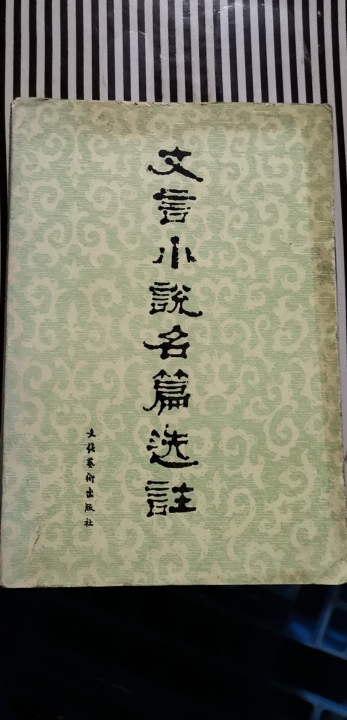 文言小說名篇选註
文化艺術出版社